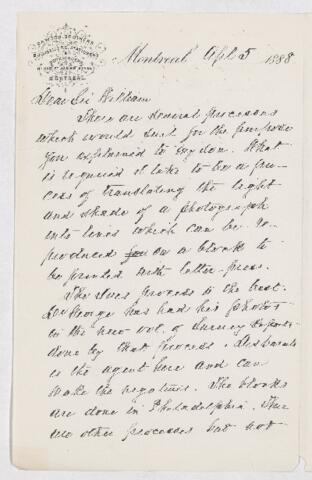 DAWSON BROTHERS
MONTREAL
Montreal Apl 5 1888
Dear Sir William
There are several processes
which would suit for the purpose
you explained to Gydon. What
is required I take to be a pro-
cess of translating the light
and shade of a photograph
into lines which can be re-
produced on a block to
be printed with letter-press.
The Ives process is the best.
Dr George has had his photos
in the new vol. of Survey Reports
done by that process.
is the agent here and can
make the negatives. The blocks
are done in Philadelphia. There
are other processes but not